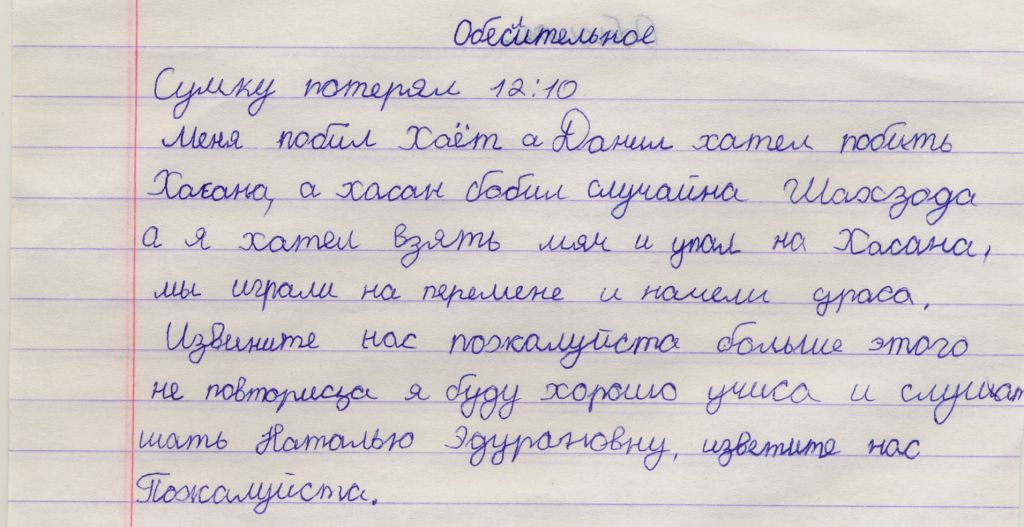 Обесительное
Сумку потерял 12:10
Меня побил Хаёт а Данил хател побить
Хасана, а хасан бобил случайна Шахзода
а я хател взять мяч и упал на Хасана,
мы играли на перемене и начели драса.
Извините нас пожалуйста больше этого
не повторисза я буду хорошо учиса и слушат
шать Наталью Эдурановну, изветите нас
Пожалуйста.